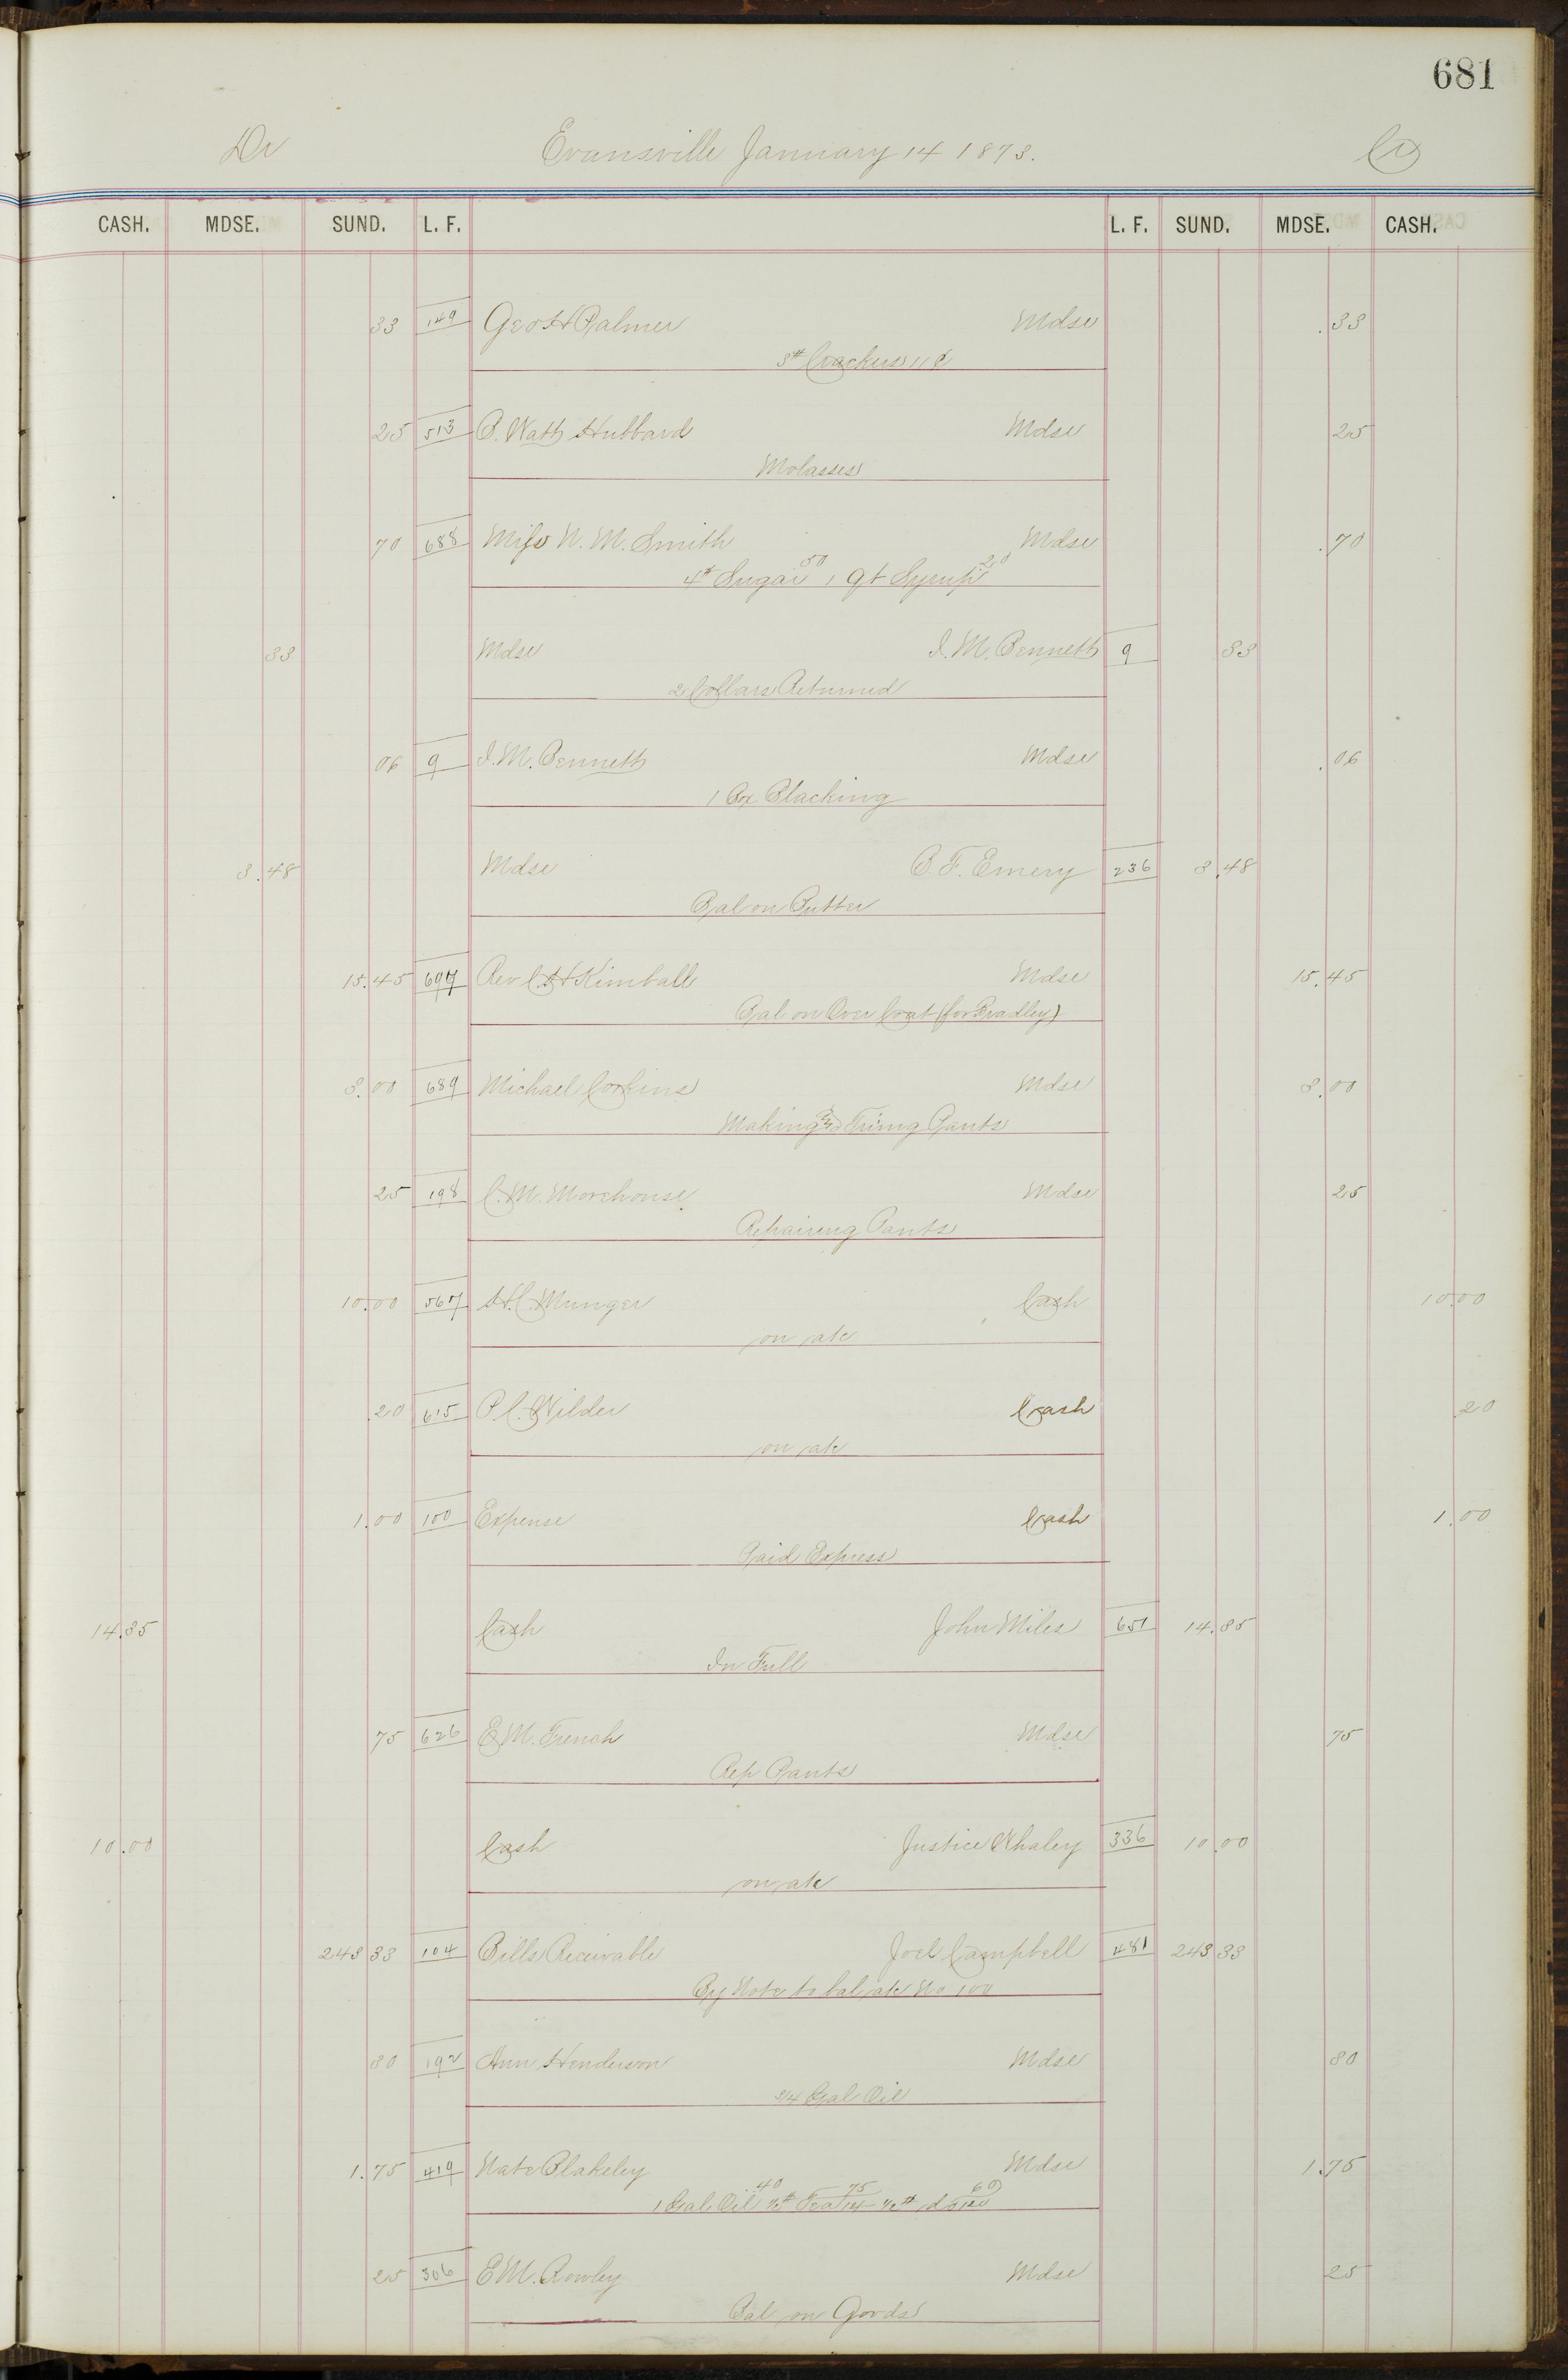 681
Dr Evansville January 14 1873. Cr
CASH. MDSE. SUND. L. F. L. F. SUND. MDSE. CASH.
33 149 Geo H Palmer Mdse .33
3# Crackers 11¢
25 513 P. Watts Hubbard Mdse 25
Molasses
70 688 Miss N. M. Smith Mdse .70
4# Sugar 50 1 qt Syrup 20
33 Mdse I. M. Bennett 9 33
2 Collars Returned
06 9 I. M. Bennett Mdse .06
1 Box Blacking
3.48 Mdse B. F. Emery 236 3.48
Bal on Butter
15.45 697 Rev C. H Kimball Mdse 15.45
Bal on Over Coat (for Bradley)
3.00 689 Michael Corkins Mdse 3.00
Making and Trimg Pants
25 198 C. M. Morehouse Mdse 25
Repairing Pants
10.00 567 H. C. Munger Cash 10.00
on a/c
.20 615 P. C. Wilder Cash 20
on a/c
1.00 100 Expense Cash 1.00
Paid Express
14.35 Cash John Miles 651 14.35
In Full
75 626 E M. French Mdse 75
Rep Pants
10.00 Cash Justice Whaley 336 10.00
on a/c
243 33 104 Bills Receivable Joel Campbell 481 243 33
By Note to bal a/c No 100
30 192 Ann Henderson Mdse 30
3/4 Gal Oil
1.75 419 Nate Blakeley Mdse 1.75
1 Gal Oil 40 1/2# Tea 75
25 306 E M. Rowley Mdse 25
Bal on Goods